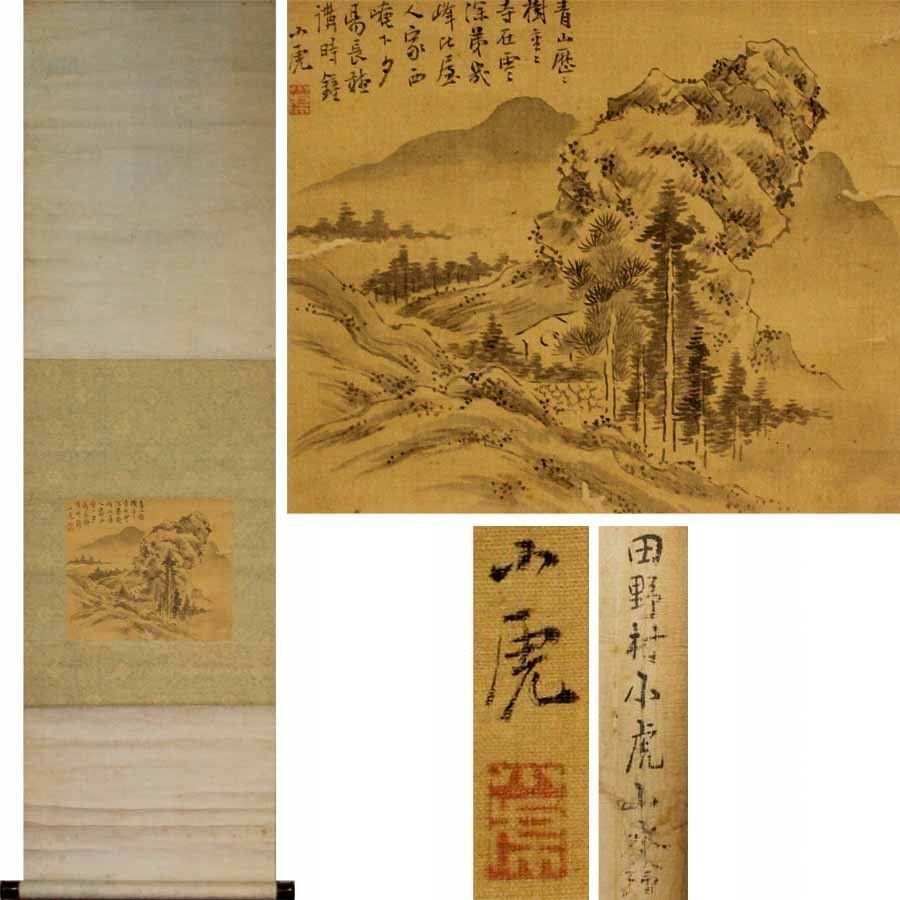 青山歴々
樹重々
寺在雲
深第幾
峰比屋
人家西
崦下夕
陽長聴
講時鐘
小虎
小虎
田野村小虎山水